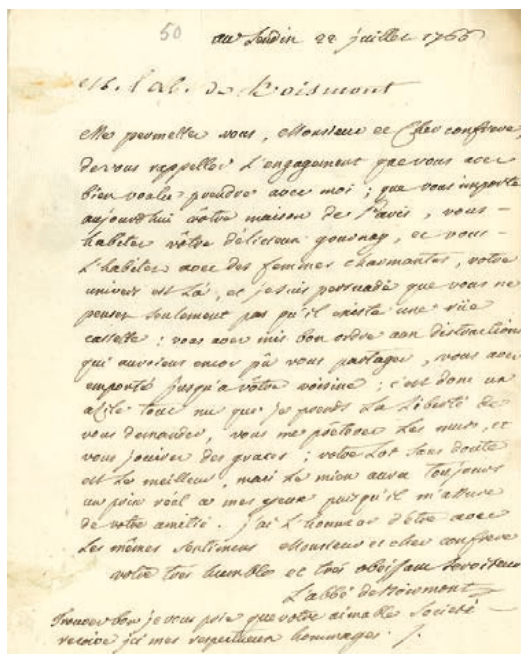 50
au Landin 22 juillet 1766
M. l'ab. de Voismont
Me permettez vous, Monsieur et Cher confrere,
de vous rappeller L'engagement que vous avez
bien voulu prendre avec moi ; que vous importe
aujourd'hui votre maison de Paris, vous
habitez vôtre délicieux gournay, et vous
L'habitez avec des femmes charmantes, votre
univers est Là, et je suis persuadé que vous ne
pensez seulement pas qu'il existe une rüe
cassette : vous avez mis bon ordre aux distractions
qui auroient encor pû vous partager, vous avez
emporté jusqu'a vôtre voisine ; c'est donc un
azile tout nu que je prends La Liberté de
vous demander, vous me pretterez Les murs, et
vous jouirez des graces ; votre Lot sans doute
est Le meilleur, mais Le mien aura toujours
un prix réel a mes yeux puisqu'il m'assure
de votre amitié. j'ai L'honneur d'être avec
Les mêmes sentimens Monsieur et cher confrere
votre très humble et très obeissant serviteur
L'abbé de Boismont
Trouvez bon je vous prie que votre aimable Societé
recoive ici mes respectueux hommages.